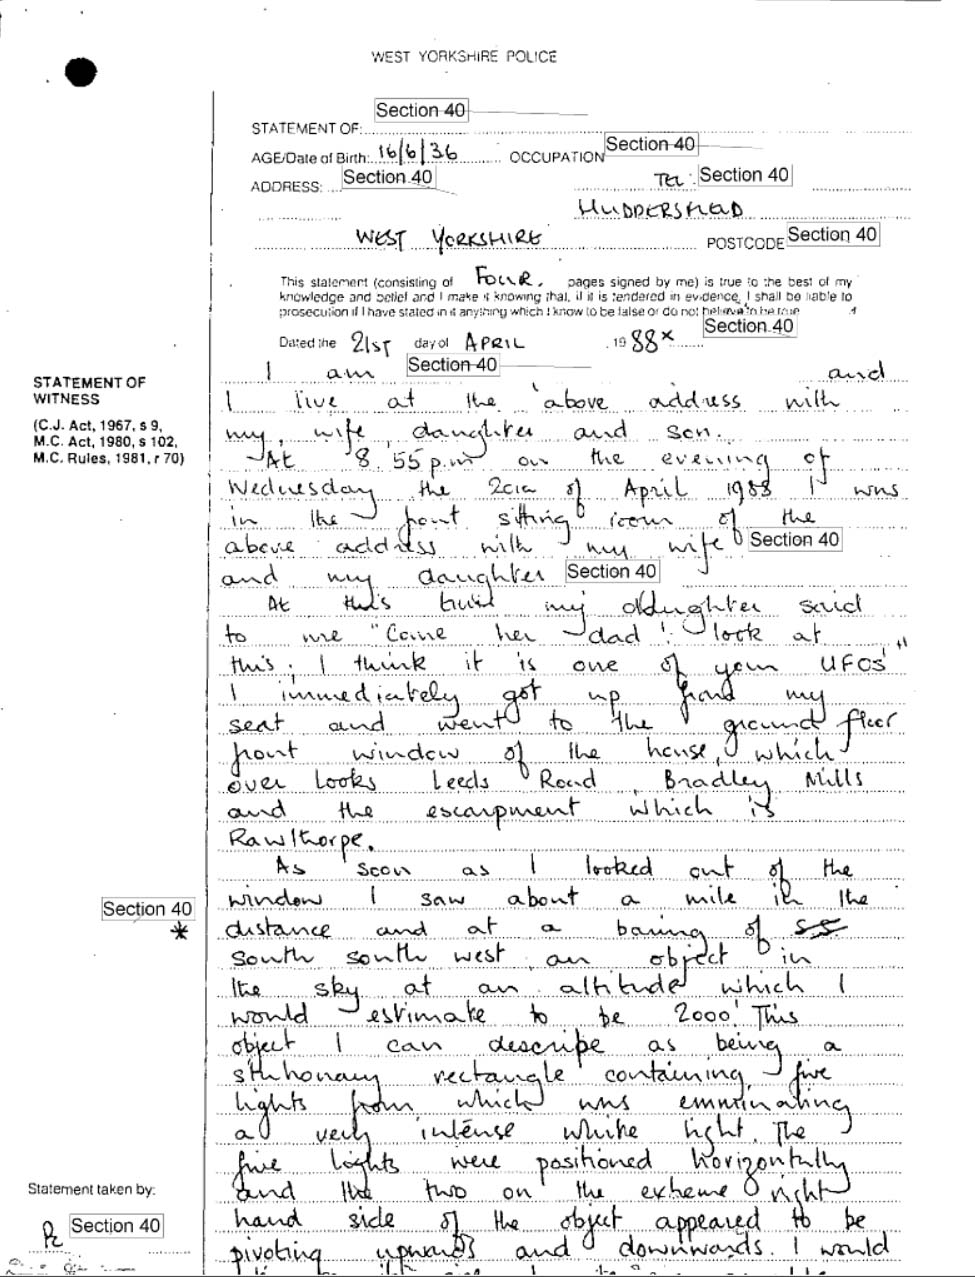 WEST YORKSHIRE POLICE
Section 40
STATEMENT OF:
AGE/Date of Birth: 16/6/36 OCCUPATION Section 40
ADDRESS: Section 40 TEL: Section 40
HUDDERSFIELD
WEST YORKSHIRE POSTCODE Section 40
This statement (consisting of FOUR. pages signed by me) is true to the best of my
knowledge and belief and I make it knowing that, if it is tendered in evidence, I shall be liable to
prosecution if I have stated in it anything which I know to be false or do not believe to be true
Section 40
Dated the 21ST day of APRIL 1988 x
STATEMENT OF
WITNESS
(C.J. Act, 1967, s 9,
M.C. Act, 1980, s 102,
M.C. Rules, 1981, r 70)
I am Section 40 and
I live at the above address with
my, wife, daughter and son.
At 8.55 p.m on the evening of
Wednesday the 20th of April 1988 I was
in the front sitting room of the
above address with my wife Section 40
and my daughter Section 40
At this time my daughter said
to me "Come her dad! look at
this. I think it is one of your UFOs"
I immediately got up from my
seat and went to the ground floor
front window of the house, which
over looks Leeds Road, Bradley Mills
and the escarpment which is
Rawthorpe.
As soon as I looked out of the
window I saw about a mile in the
Section 40
*
distance and at a baring of
South south west an object in
the sky at an altitude which I
would estimate to be 2000'. This
object I can describe as being a
stationary rectangle containing five
lights from which was emminating
a very intense white light. The
five lights were positioned horizontally
and the two on the extreme right
hand side of the object appeared to be
pivoting upwards and downwards. I would
Statement taken by:
Pc Section 40